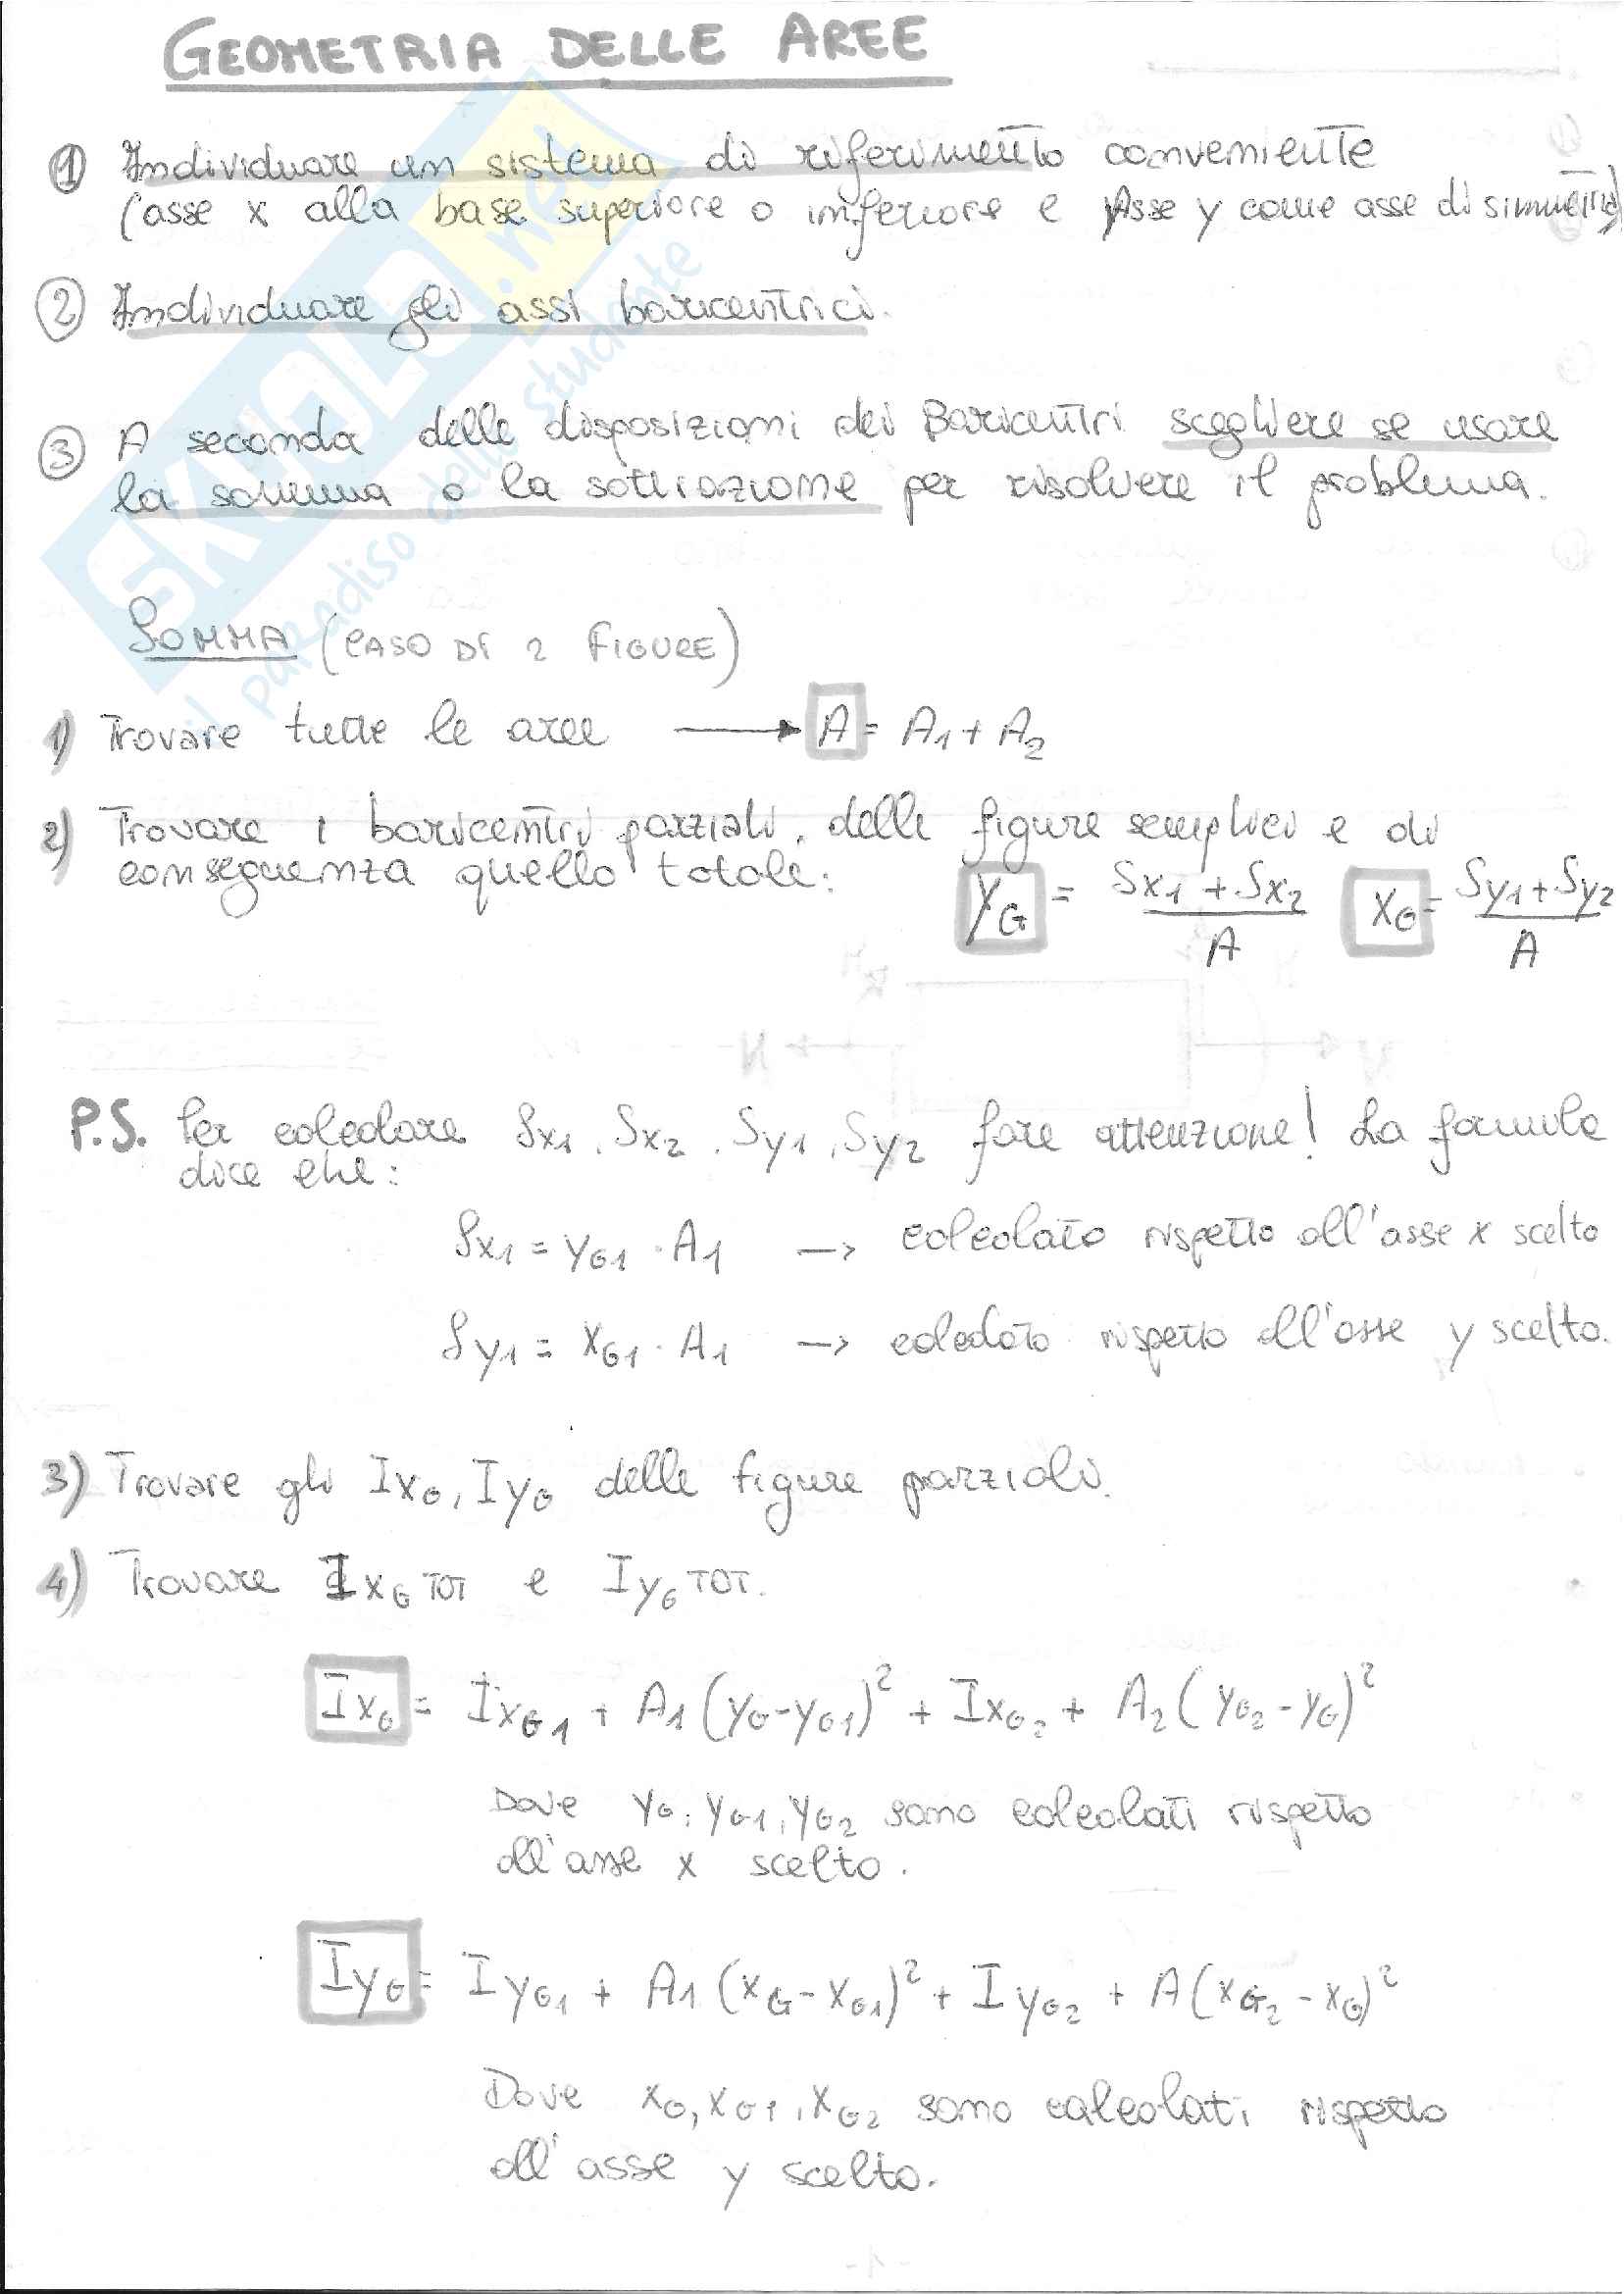 GEOMETRIA DELLE AREE
① Individuare un sistema di riferimento conveniente
(asse x alla base superiore o inferiore e Asse y come asse di simmetria)
② Individuare gli assi baricentrici.
③ A seconda delle disposizioni dei Baricentri scegliere se usare
la somma o la sottrazione per risolvere il problema.
SKUOLA.net
il paradiso dello studente
SOMMA (CASO DI 2 FIGURE)
1) Trovare tutte le aree → A = A₁ + A₂
2) Trovare i baricentri parziali, delle figure semplici e di
conseguenza quello totale: Y_G = (Sx₁ + Sx₂)/A X_G = (Sy₁ + Sy₂)/A
P.S. Per calcolare Sx₁, Sx₂, Sy₁, Sy₂ fare attenzione! La formula
dice che:
Sx₁ = y_G1 · A₁ → calcolato rispetto all'asse x scelto
Sy₁ = x_G1 · A₁ → calcolato rispetto all'asse y scelto.
3) Trovare gli Ix_G, Iy_G delle figure parziali.
4) Trovare Ix_G TOT e Iy_G TOT.
Ix_G = Ix_G1 + A₁(y_G - y_G1)² + Ix_G2 + A₂(y_G2 - y_G)²
Dove y_G, y_G1, y_G2 sono calcolati rispetto
all'asse x scelto.
Iy_G = Iy_G1 + A₁(x_G - x_G1)² + Iy_G2 + A(x_G2 - x_G)²
Dove x_G, x_G1, x_G2 sono calcolati rispetto
all'asse y scelto.
-1-